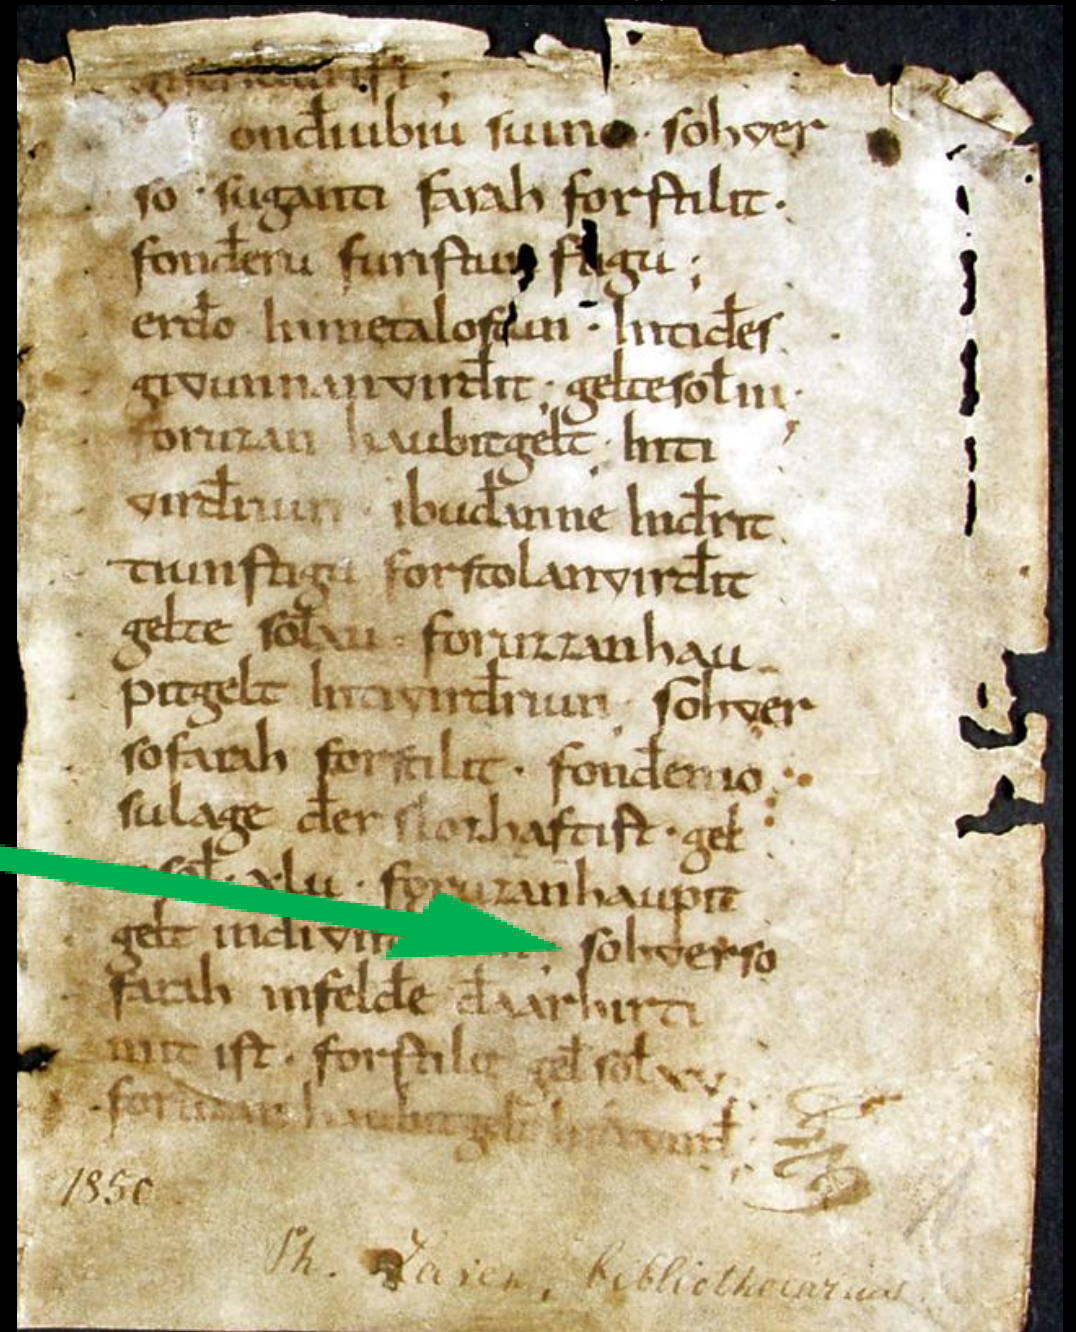 onđiubiu suino · sohver
so · suganti farah forstilit ·
fonđeru furistun stigu ;
erđo inmetalostun · intiđes
givunnanvirđit · geltesol iii ·
foruzan haubitgelt · inti
virđriun · ibuđanne inđrit
tiunstigu forstolanvirđit
gelte sol xv · foruzzanhau
pitgelt intivirđriun · sohver
sofarah forstilit · fonđemo
sulage đer slozhaftist · gel
sol · xlv · foruzanhaupit
gelt indi
sohverso
farah infelđe đaarhirti
mit ist · forstilit gel sol xv
foruzan haubitgelt intivirđ
1850
Ph.
bibliothecarius